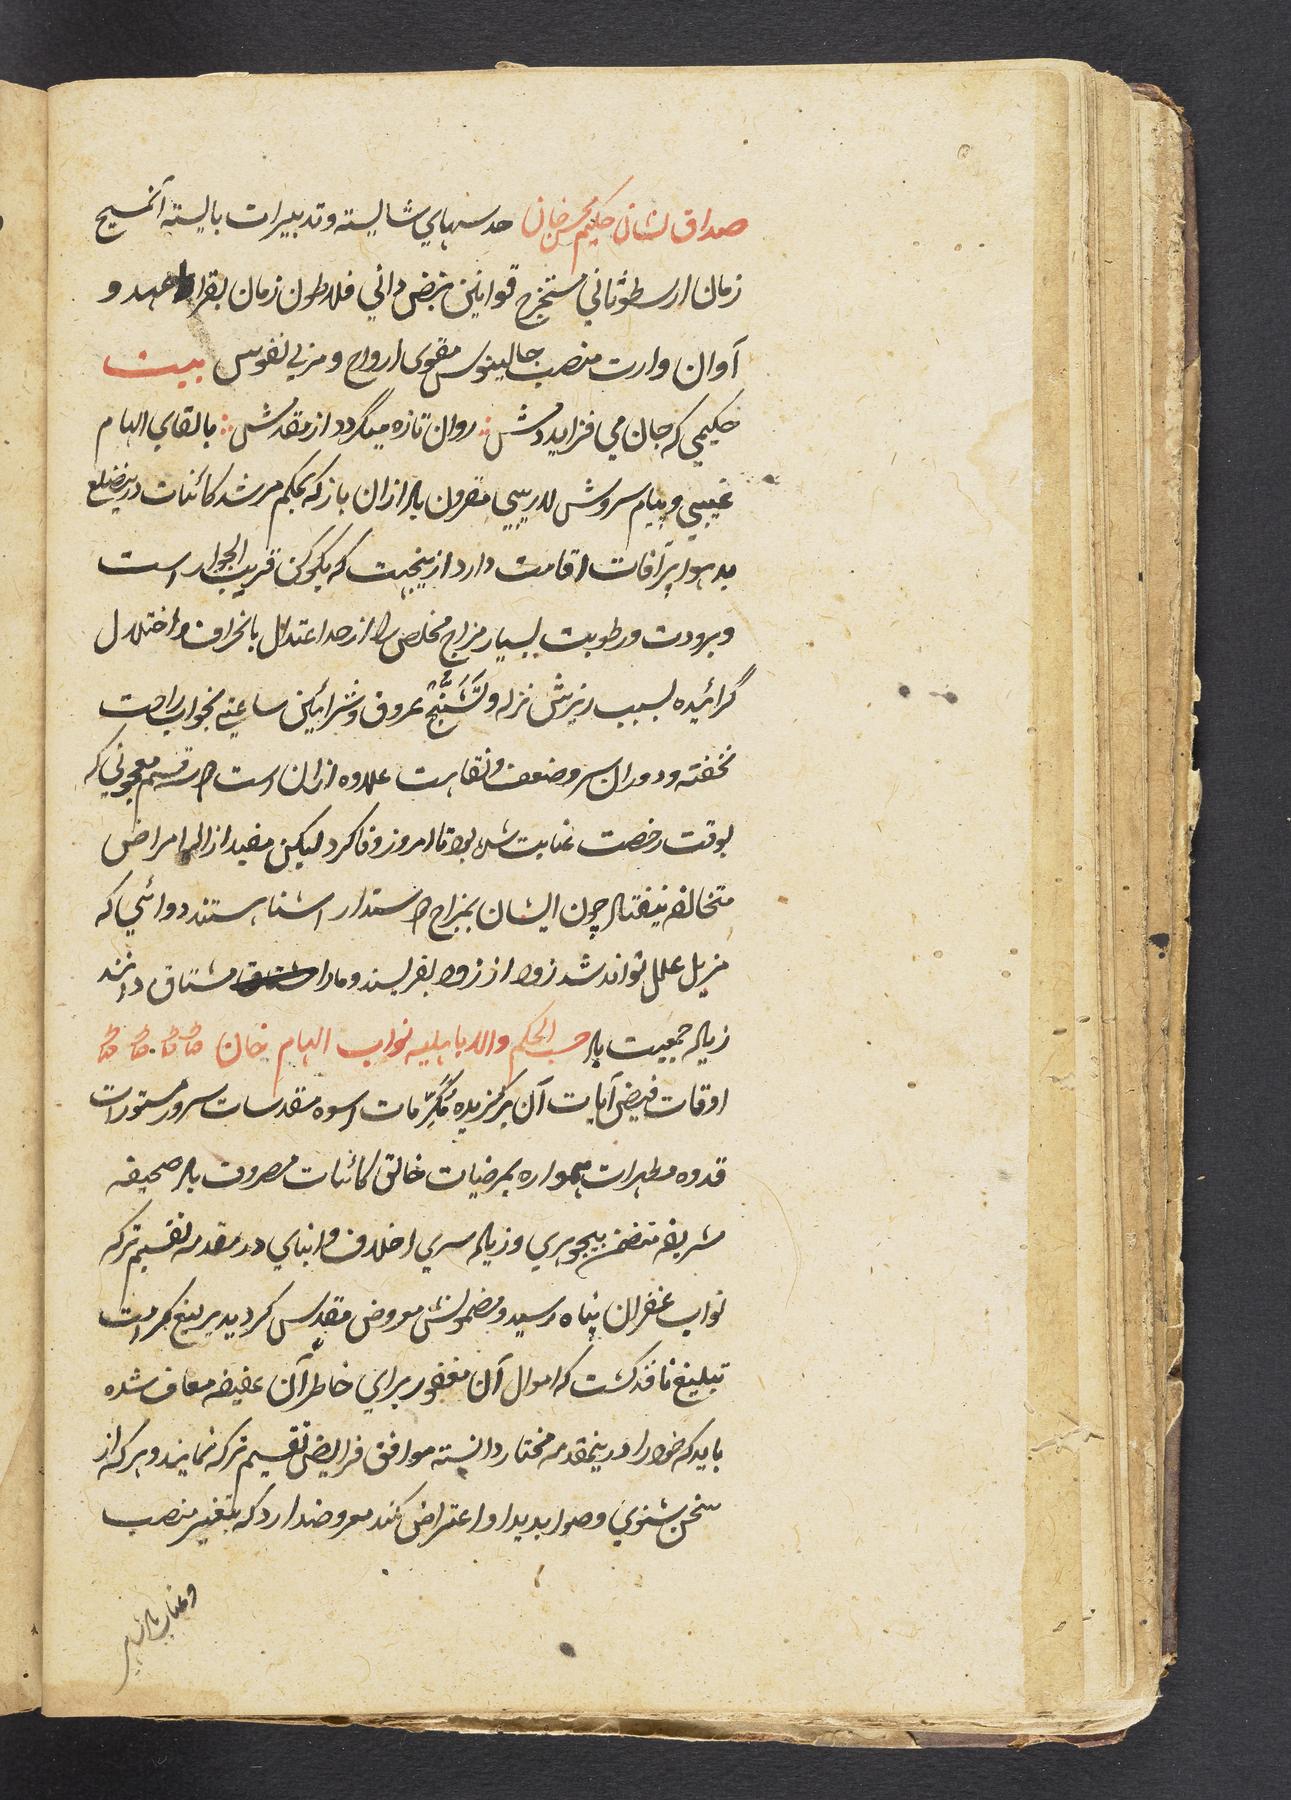 صداقت نشان حکیم محسن خان حدسهای شایسته و تدبیرات بایسته آنمسیح
زمان ارسطوی ثانی مستخرج قوانین نبض دانی فلاطون زمان بقراط عهد و
آوان وارث منصب جالینوس مقوی ارواح و مربی نفوس بیت
حکیمی که جان می فزاید دمش روان تازه میگردد از مقدمش بالقای الهام
غیبی و پیام سروش لاریبی مقرون باد ازان باز که بحکم مرشد کائنات درینضلع
بد هوا پر آفات اقامت دارد ازینجهت که بکوکن قریب الجوار است
و برودت و رطوبت بسیار مزاج مخلص را از حد اعتدال بانحراف و اختلال
گرائیده بسبب ریزش نزله و تشنج عروق و شرائین ساعتی بخواب راحت
نخفته و دوران سر و ضعف و نقاهت علاوه ازان است هر قسم معجونی که
بوقت رخصت عنایت شده بود تا امروز وفا کرد لیکن مفید ازاله امراض
متخالفه نیفتاد چون ایشان بمزاج دوستدار آشنا هستند دوائی که
مزیل علل تواند شد زود از زود بفریسند و ما را مشتاق دانند
زیاده جمعیت باد حسب الحکم والا باهلیه نواب الهام خان
اوقات فیض آیات آن برگزیده مکرمات اسوه مقدسات سرور مستورات
قدوه مطهرات همواره بمرضیات خالق کائنات مصروف باد صحیفه
شریفه متضمن بیجوهری و زیاده سری اخلاف و ابنای در مقدمه تقسیم ترکه
نواب غفران پناه رسید و مضمونش معروض مقدس گردید یرلیغ کرامت
تبلیغ نافذ گشت که اموال آن مغفور برای خاطر آن عفیفه معاف شده
باید که خود را درینمقدمه مختار دانسته موافق فرایض تقسیم ترکه نمایند و هر که از
سخن شنوی و صوابدید او اعتراض کند معروضدارد که بتغیر منصب